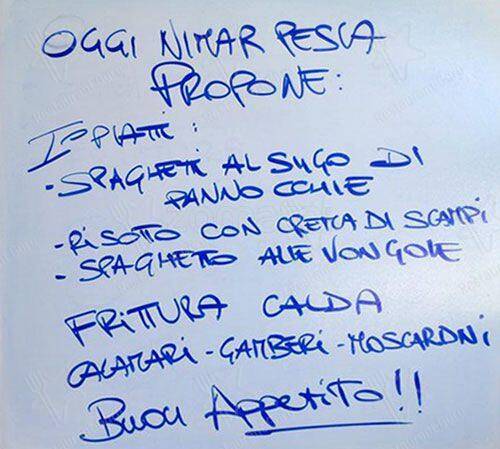 OGGI NIMAR PESCA
PROPONE:
I° PIATTI:
- SPAGHETTI AL SUGO DI
PANNOCCHIE
- RISOTTO CON CREMA DI SCAMPI
- SPAGHETTO ALLE VONGOLE
FRITTURA CALDA
CALAMARI - GAMBERI - MOSCARDINI
BUON APPETITO!!